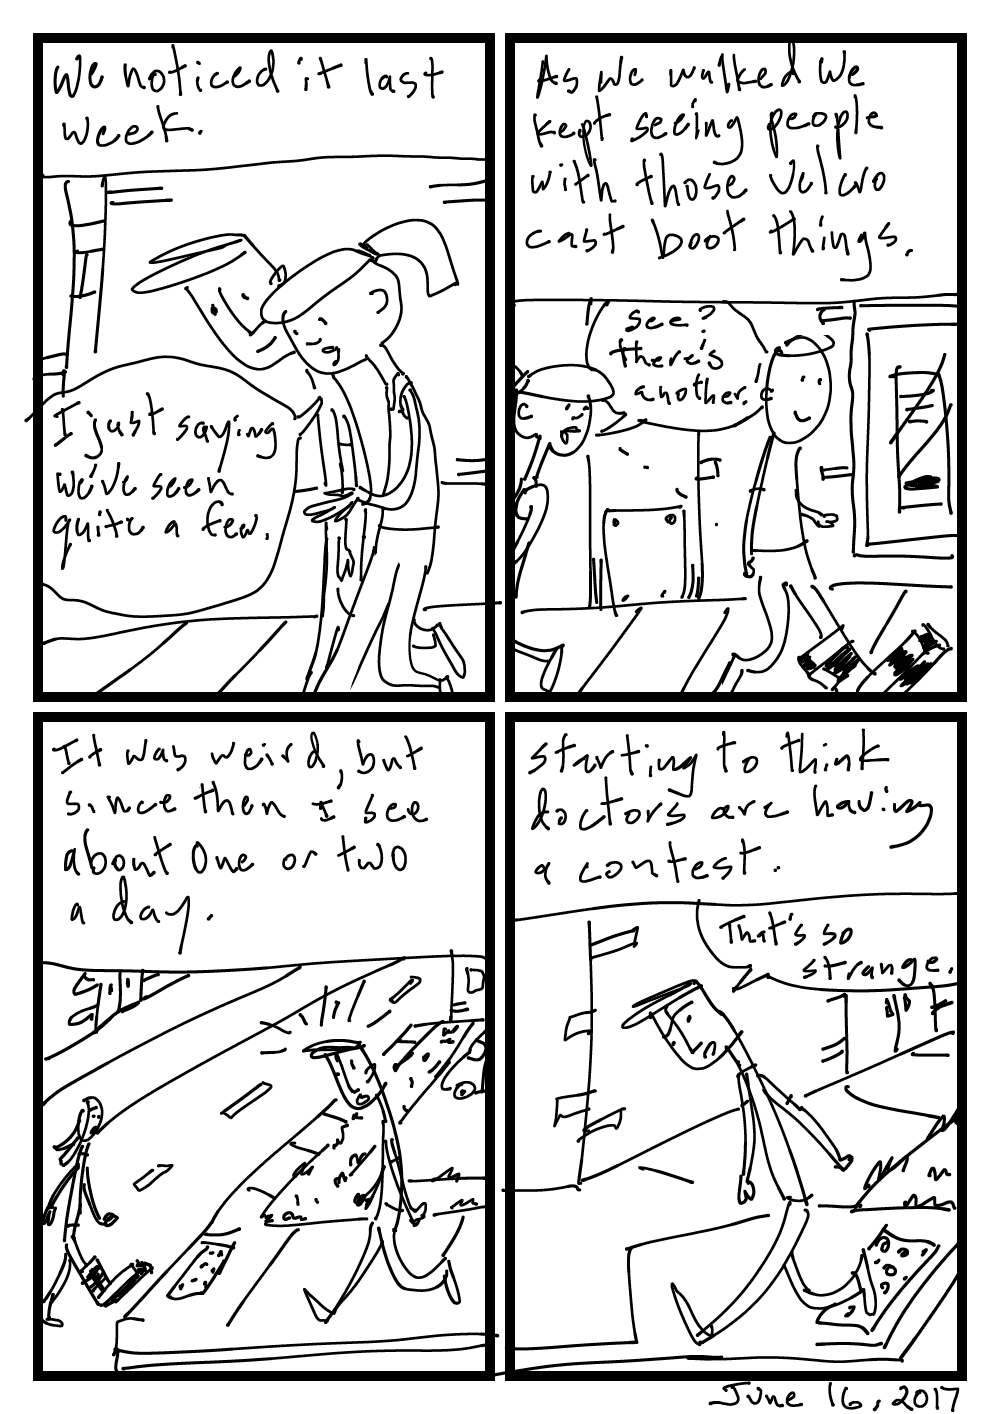 We noticed it last
week.
I just saying
we've seen
quite a few.
As we walked we
kept seeing people
with those Velcro
cast boot things.
see?
there's
another!
It was weird, but
since then I see
about one or two
a day.
starting to think
doctors are having
a contest.
That's so
strange.
June 16, 2017